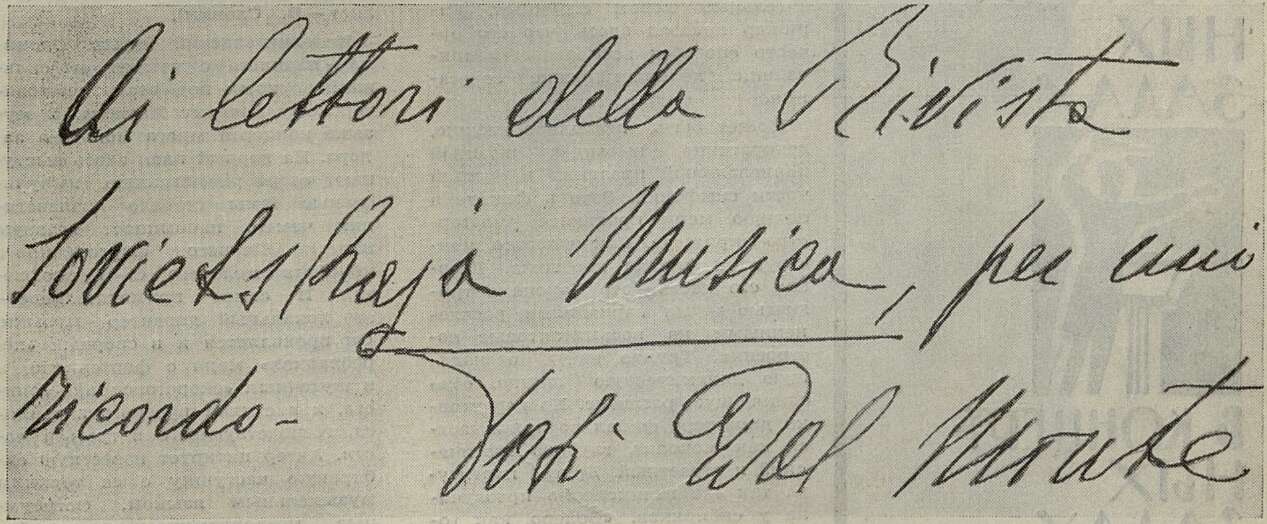 Ai lettori della Rivista
Sovietskaja Musica, per mio
ricordo - Toti Dal Monte